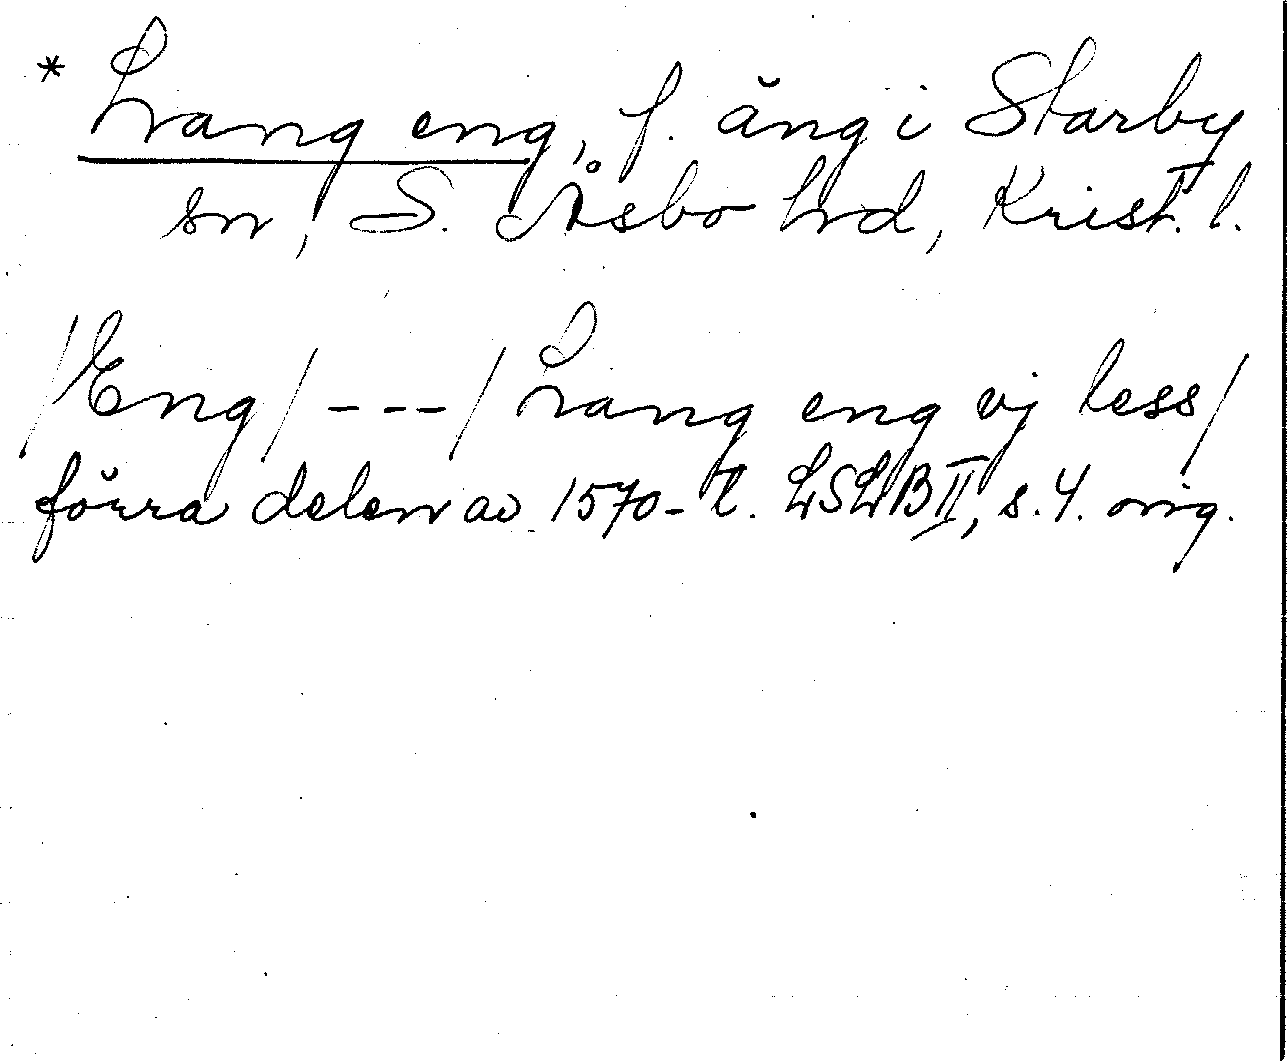 * Lang eng, f. äng i Starby
sn, S. Åsbo hd, Krist. l.
/Eng/ - - - / Lang eng vj less/
förra delen av 1570-t. LSLB II, s. 4. orig.